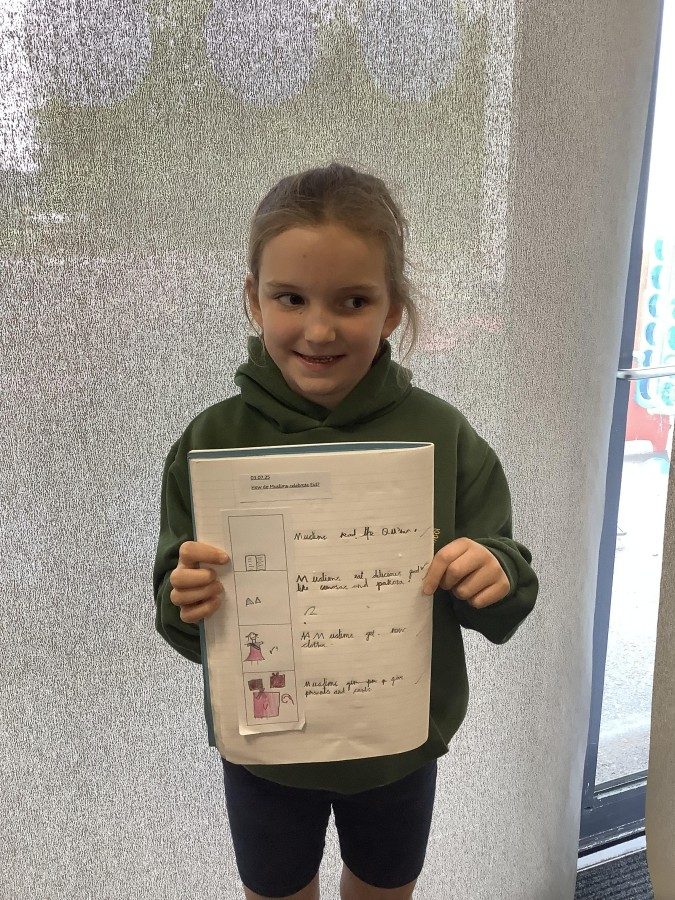 03.07.25
How do Muslims celebrate Eid?
Muslims read the Qur'an.
Muslims eat delicious food
like samosas and pakora.
M Muslims get new
clothes.
Muslims give you give
presents and cards